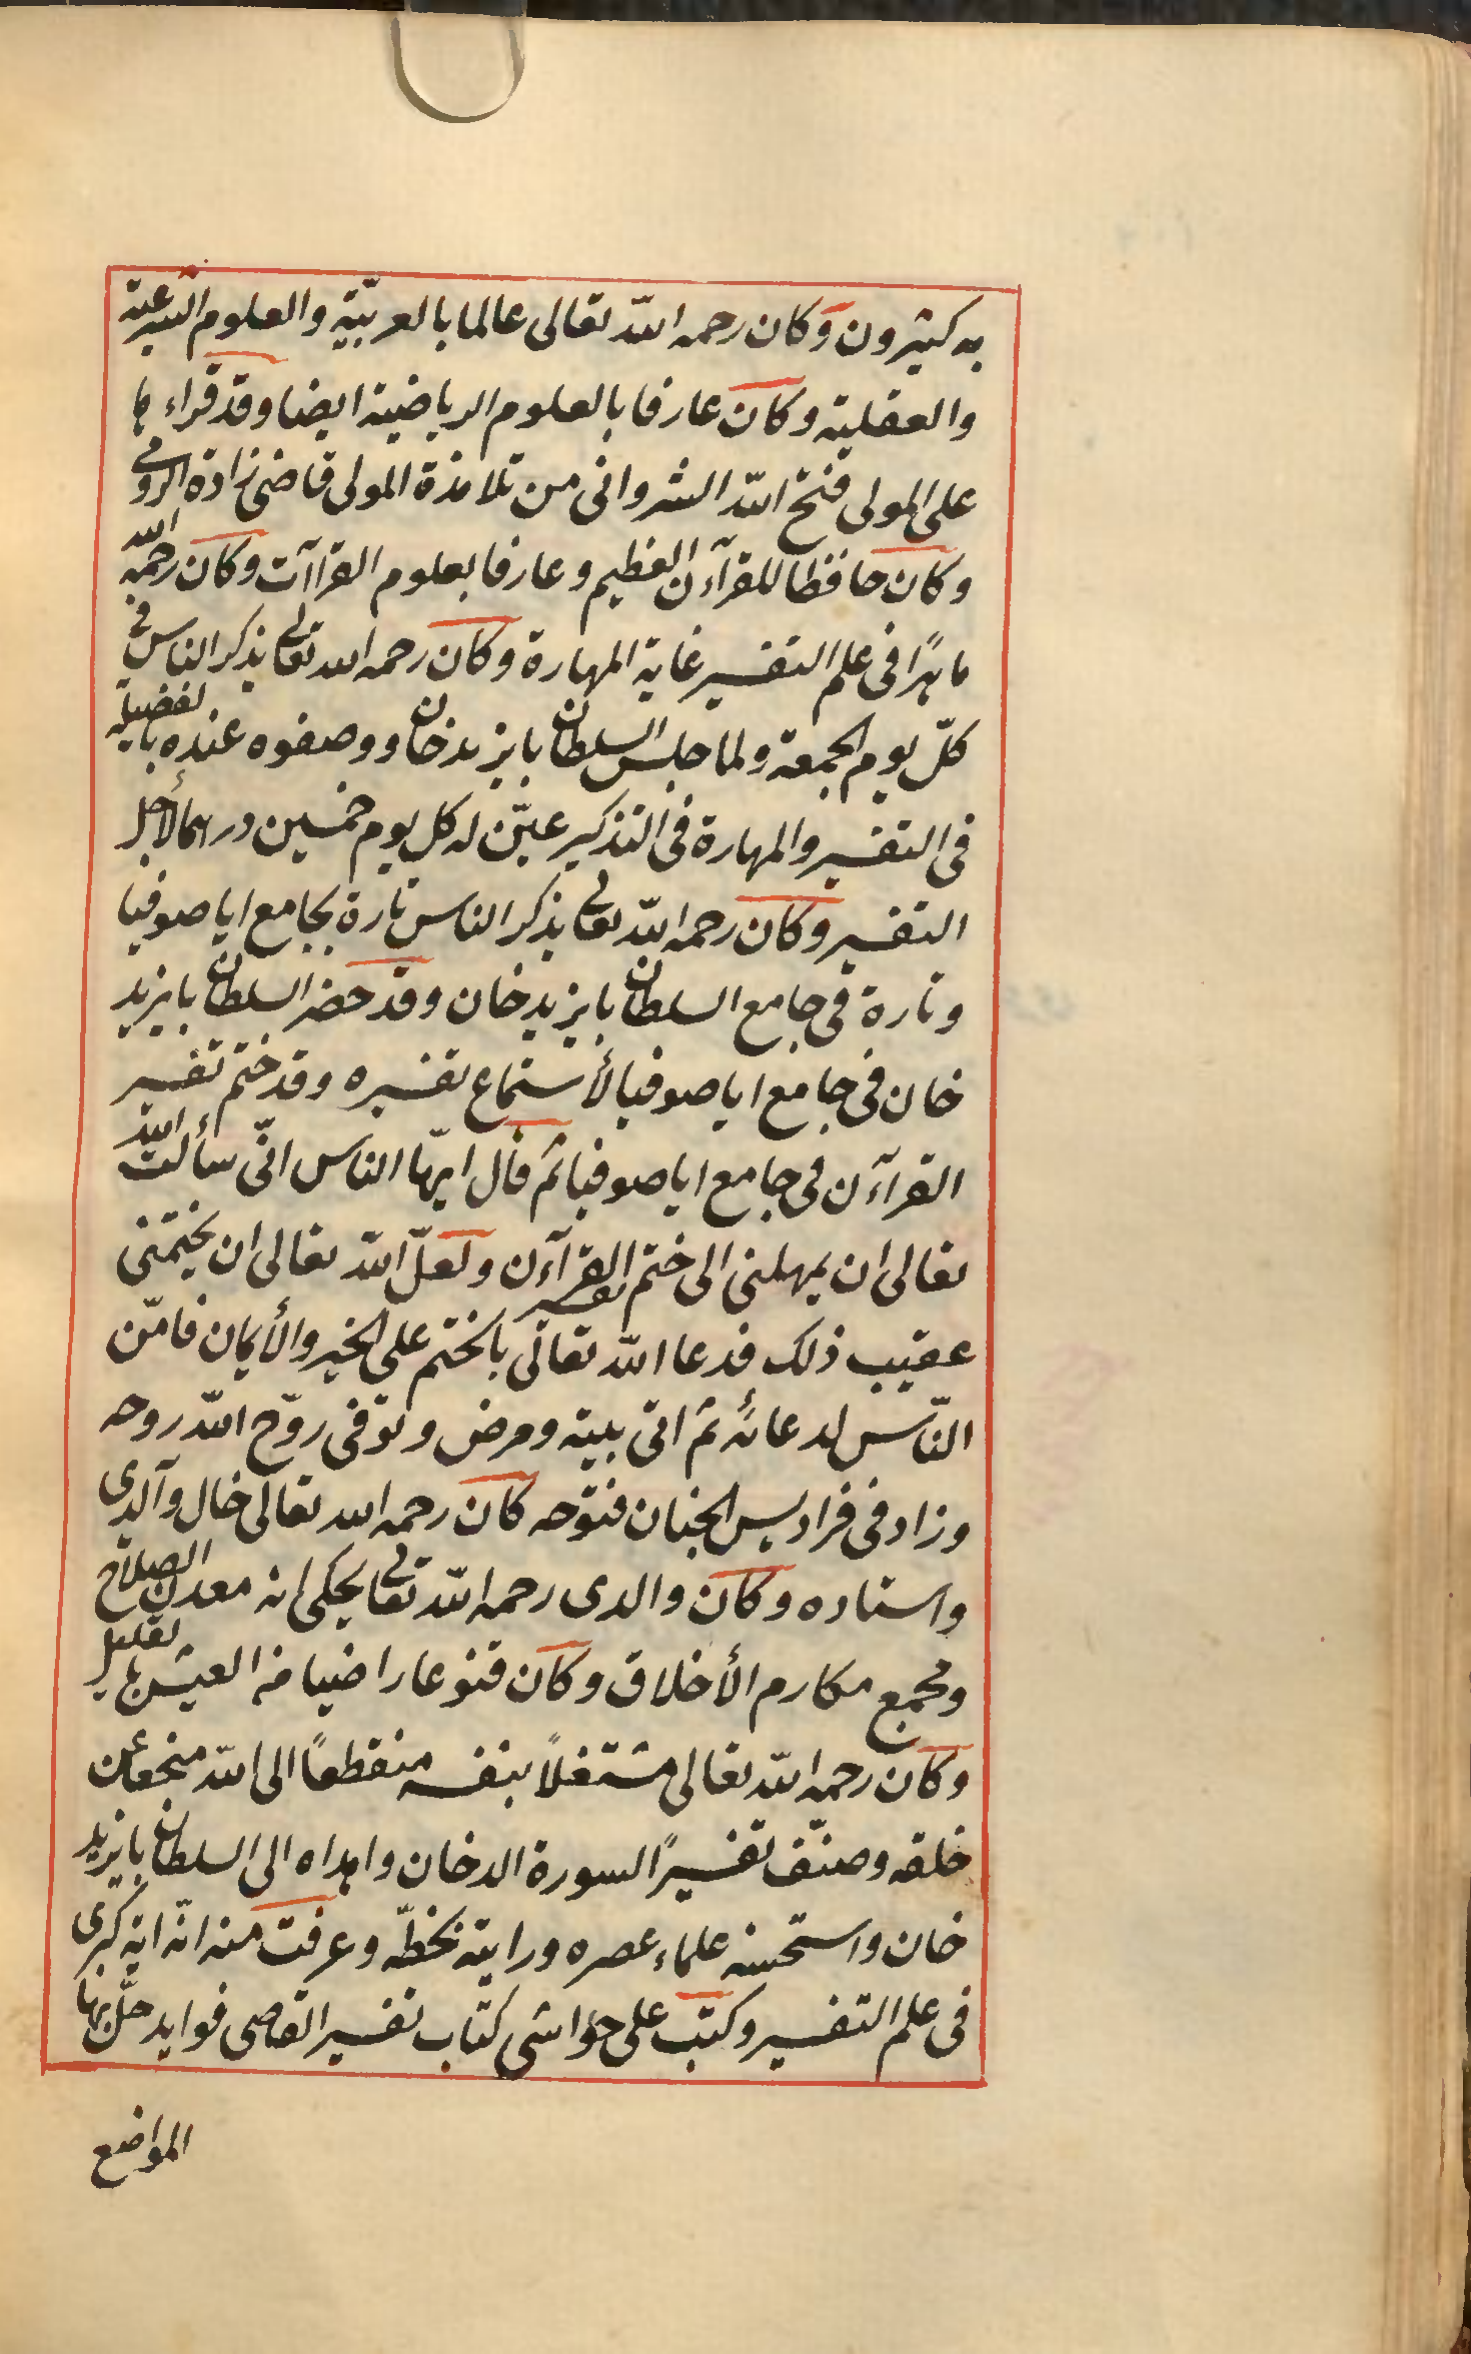 به كثيرون وكان رحمه الله تعالى عالما بالعربيّة والعلوم الشرعية
والعقلية وكان عارفا بالعلوم الرياضية ايضا وقد قراء ها
على المولى فتح الله الشروانى من تلامذة المولى قاضى زاده الرومى
وكان حافظا للقرآن العظيم وعارفا بعلوم القراآت وكان رحمه الله
ماهرًا فى علم التفسير غاية المهارة وكان رحمه الله تعالى يذكر الناس فى
كلّ يوم الجمعة ولما جلس السلطان بايزيد خان و ووصفوه عنده بالفضيلة
فى التفسير والمهارة فى التذكير عيّن له كل يوم خمسين درهما لأجل
التفسير وكان رحمه الله تعالى يذكر الناس تارة بجامع اياصوفيا
وتارة فى جامع السلطان بايزيد خان وقد حضر السلطان بايزيد
خان فى جامع اياصوفيا لأستماع تفسيره وقد ختم تفسير
القرآن فى جامع اياصوفيا ثم قال ايّها الناس انّى سألت الله
تعالى ان يمهلنى الى ختم تفسير القرآن ولعلّ الله تعالى ان يختمنى
عقيب ذلك فدعا الله تعالى بالختم على الخير والأيمان فامّن
النّاس لدعائه ثم اتى بيته ومرض وتوفى روّح الله روحه
وزاد فى فراديس الجنان فتوحه كان رحمه الله تعالى خال والدى
واستاده وكان والدى رحمه الله تعالى يحكى انه معدن الصلاح
ومجمع مكارم الأخلاق وكان قنوعا راضيا من العيش بالقليل
وكان رحمه الله تعالى مشتغلاً بنفسه منقطعًا الى الله منجمعا عن
خلقه وصنّف تفسيرًا لسورة الدخان واهداه الى السلطان بايزيد
خان واستحسنه علماء عصره ورايته بخطّه وعرفت منه انّه اية كبرى
فى علم التفسير وكتب على حواشى كتاب تفسير القاضى فوايد حلّ بها
المواضع